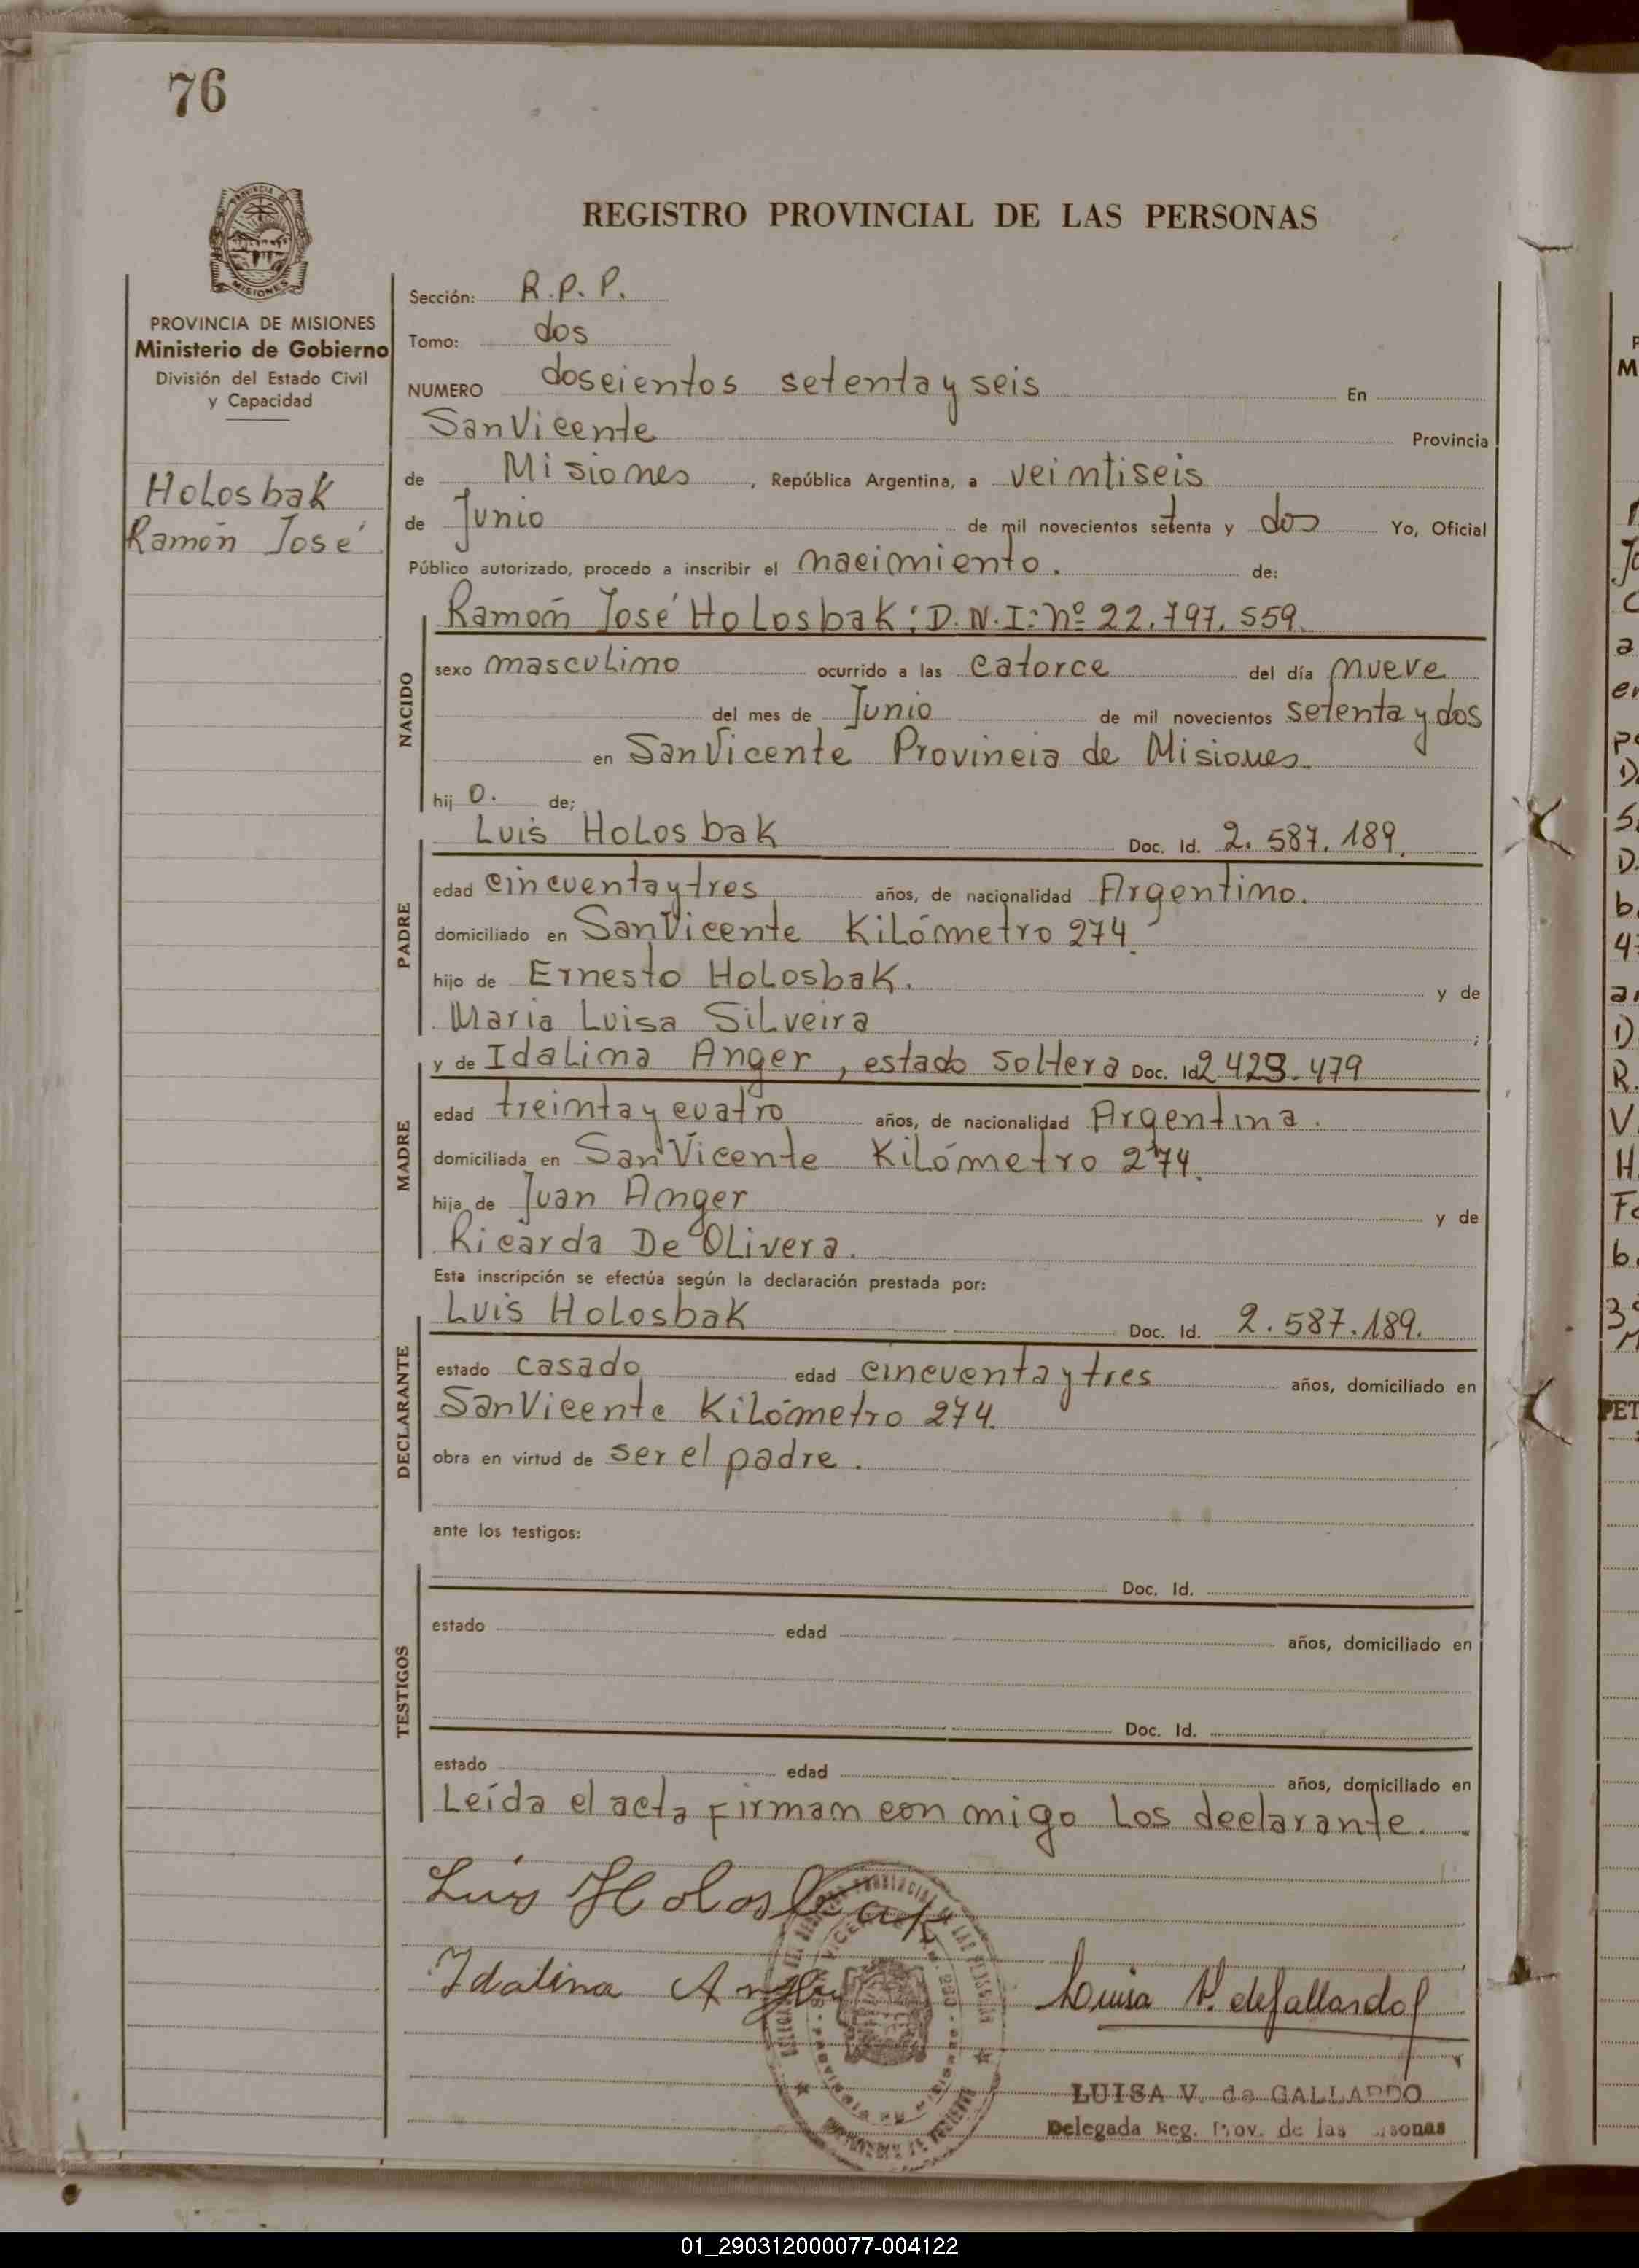 76
PROVINCIA
MISIONES
REGISTRO PROVINCIAL DE LAS PERSONAS
PROVINCIA DE MISIONES
Ministerio de Gobierno
División del Estado Civil
y Capacidad
Holosbak
Ramón José
Sección: R.P.P.
Tomo: dos
NUMERO doscientos setenta y seis En
San Vicente Provincia
de Misiones, República Argentina, a veintiseis
de Junio de mil novecientos setenta y dos Yo, Oficial
Público autorizado, procedo a inscribir el nacimiento. de:
NACIDO
Ramón José Holosbak: D.N.I: nº 22.797.559.
sexo masculino ocurrido a las catorce del día nueve
del mes de Junio de mil novecientos setenta y dos
en San Vicente Provincia de Misiones
hijo. de;
PADRE
Luis Holosbak Doc. Id. 2.587.189.
edad cincuenta y tres años, de nacionalidad Argentino.
domiciliado en San Vicente Kilómetro 274.
hijo de Ernesto Holosbak. y de
Maria Luisa Silveira ;
MADRE
y de Idalina Anger, estado soltera Doc. Id 2 423.479
edad treinta y cuatro años, de nacionalidad Argentina.
domiciliada en San Vicente Kilómetro 274.
hija de Juan Anger y de
Ricarda De Olivera.
Esta inscripción se efectúa según la declaración prestada por:
DECLARANTE
Luis Holosbak Doc. Id. 2.587.189.
estado casado edad cincuenta y tres años, domiciliado en
San Vicente Kilómetro 274.
obra en virtud de ser el padre.
ante los testigos:
TESTIGOS
Doc. Id.
estado edad años, domiciliado en
Doc. Id.
estado edad años, domiciliado en
Leída el acta firman con migo los declarante.
Luis Holosbak
Idalina Anger
Luisa V. de Gallardo
LUISA V. de GALLARDO
Delegada Reg. Prov. de las
01_290312000077-004122